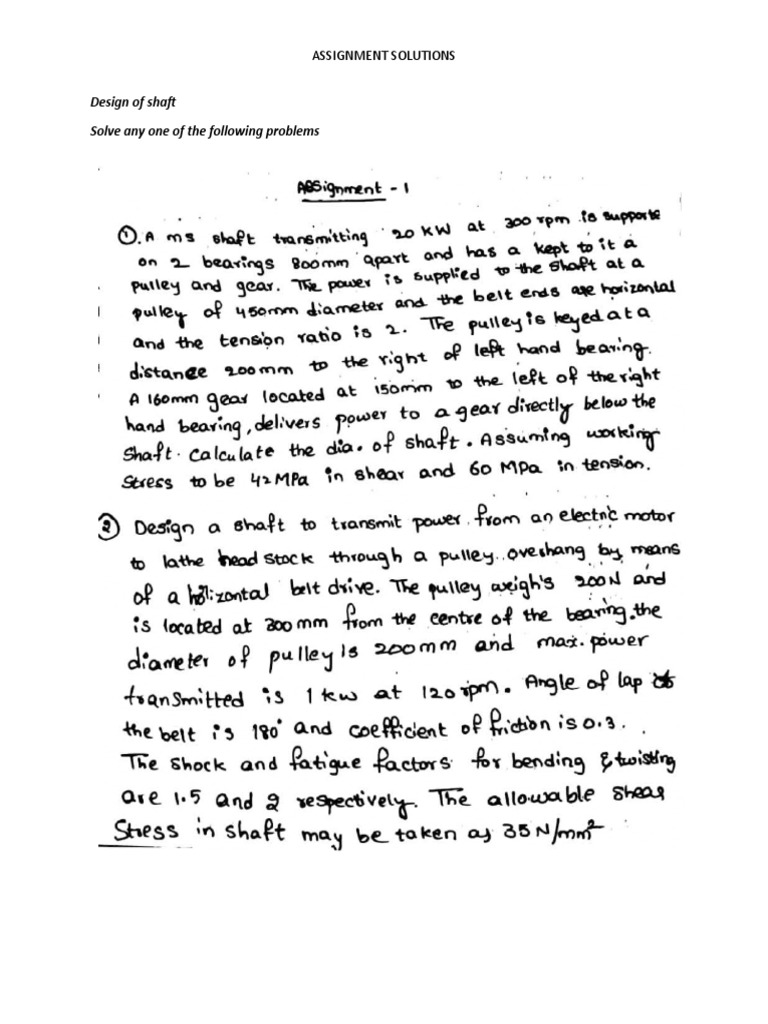 ASSIGNMENT SOLUTIONS
Design of shaft
Solve any one of the following problems
Assignment - 1
①. A ms shaft transmitting 20 KW at 300 rpm is supporte
on 2 bearings 800mm apart and has a kept to it a
pulley and gear. The power is supplied to the shaft at a
pulley of 450mm diameter and the belt ends are horizontal
and the tension ratio is 2. The pulley is keyed at a
distance 200mm to the right of left hand bearing.
A 160mm gear located at 150mm to the left of the right
hand bearing, delivers power to a gear directly below the
shaft. Calculate the dia. of shaft. Assuming working
stress to be 42MPa in shear and 60 MPa in tension.
② Design a shaft to transmit power from an electric motor
to lathe head stock through a pulley overhang by means
of a holizontal belt drive. The pulley weigh's 200N and
is located at 300mm from the centre of the bearing. the
diameter of pulley is 200mm and max. power
transmitted is 1 kw at 120 rpm. Angle of lap
the belt is 180° and coefficient of friction is 0.3.
The shock and fatigue factors for bending & twisting
are 1.5 and 2 respectively. The allowable shear
stress in shaft may be taken as 35N/mm²